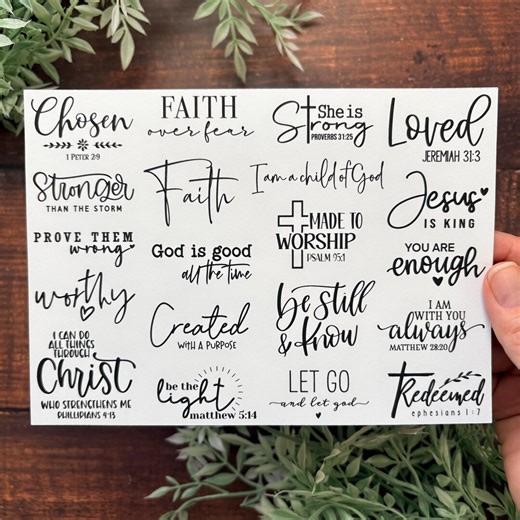 Chosen
1 PETER 2:9
FAITH
over fear
She is
Strong
PROVERBS 31:25
Loved
JEREMIAH 31:3
Stronger
THAN THE STORM
Faith
I am a child of God
Jesus
IS KING
PROVE THEM
wrong
God is good
all the time
MADE TO
WORSHIP
PSALM 95:1
YOU ARE
enough
worthy
Created
WITH A PURPOSE
be still
& know
I AM
WITH YOU
always
MATTHEW 28:20
I CAN DO
ALL THINGS
THROUGH
Christ
WHO STRENGTHENS ME
PHILLIPIANS 4:13
be the
light
matthew 5:14
LET GO
and let god
Redeemed
ephesians 1:7